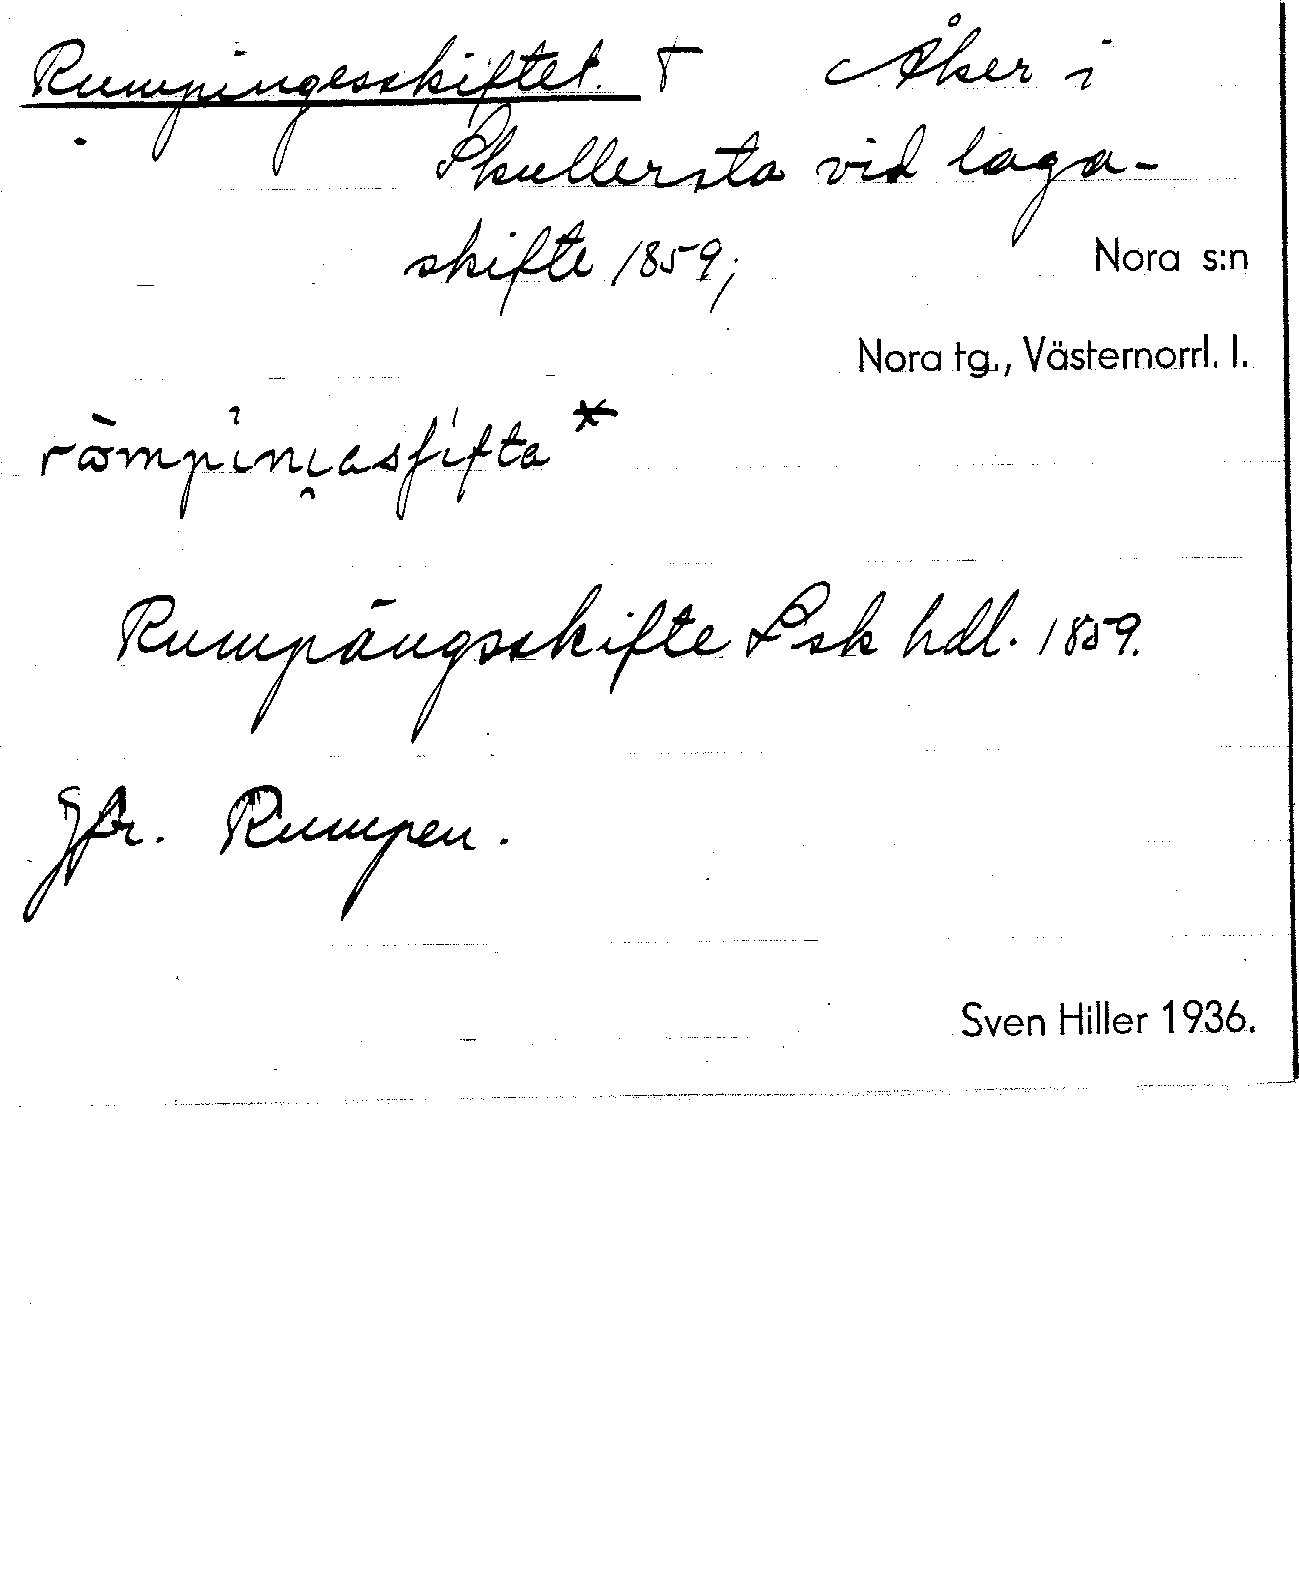 Rumpingesskiftet. † Åker i
Skullersta vid laga-
skifte 1859;
Nora s:n
Nora tg., Västernorrl. l.
Rumpängsskifte Lsk hdl. 1859.
Jfr. Rumpen.
Sven Hiller 1936.